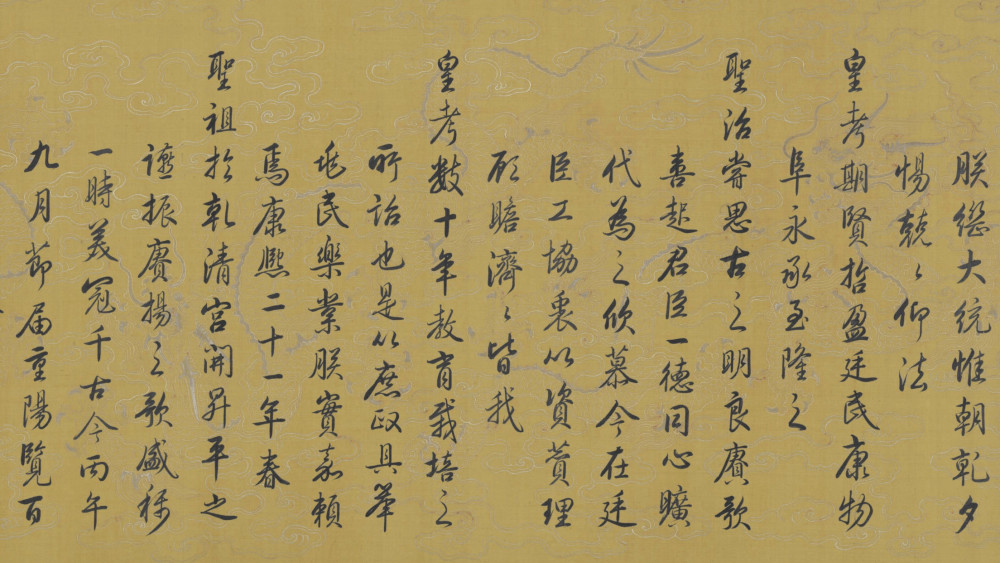 朕繼大統惟朝乹夕
惕兢〻仰法
皇考期賢哲盈廷民康物
阜永承至隆之
聖治甞思古之明良賡歌
喜起君臣一德同心曠
代為之欣慕今在廷
臣工協衷以資贊理
顧瞻濟〻皆我
皇考數十年教育栽培之
所詒也是以庶政具舉
兆民樂業朕實嘉賴
焉康熙二十一年春
聖祖於乾清宮開昇平之
讌振賡揚之歌盛稱
一時美冠千古今丙午
九月節届重陽覽百